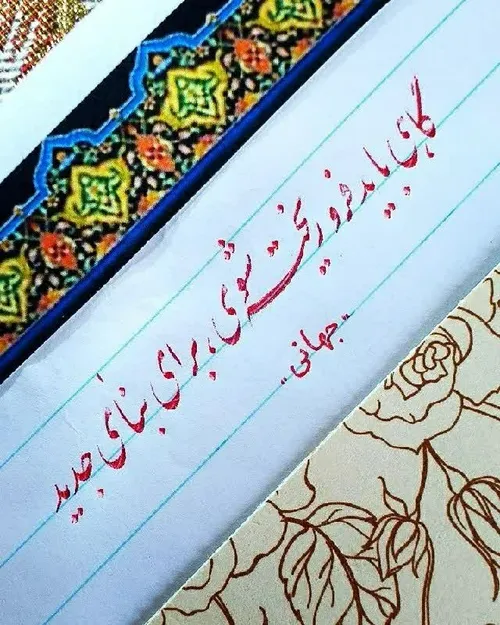 گاهی باید فرو ریخت شوی، برای بنای جدید
"جهانی"